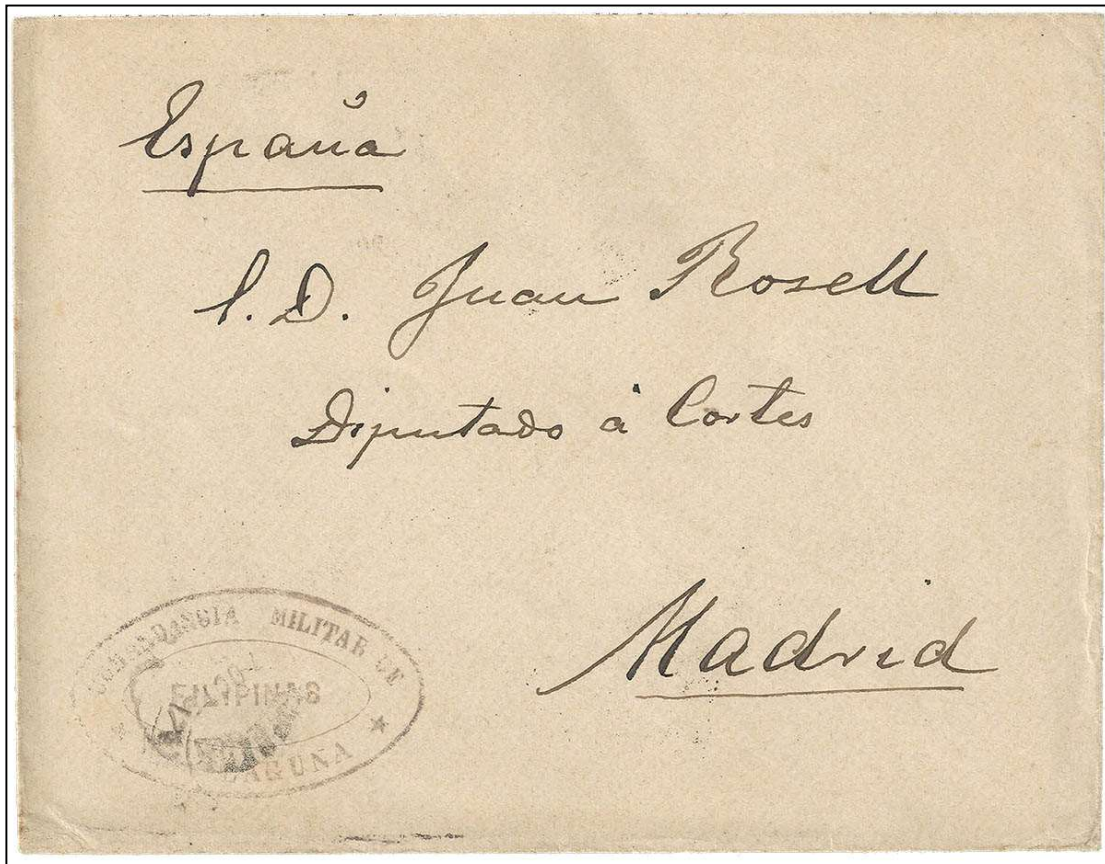 España
S. D. Juan Rosell
Diputado á Cortes
Madrid
COMANDANCIA MILITAR DE
FILIPINAS
LAGUNA